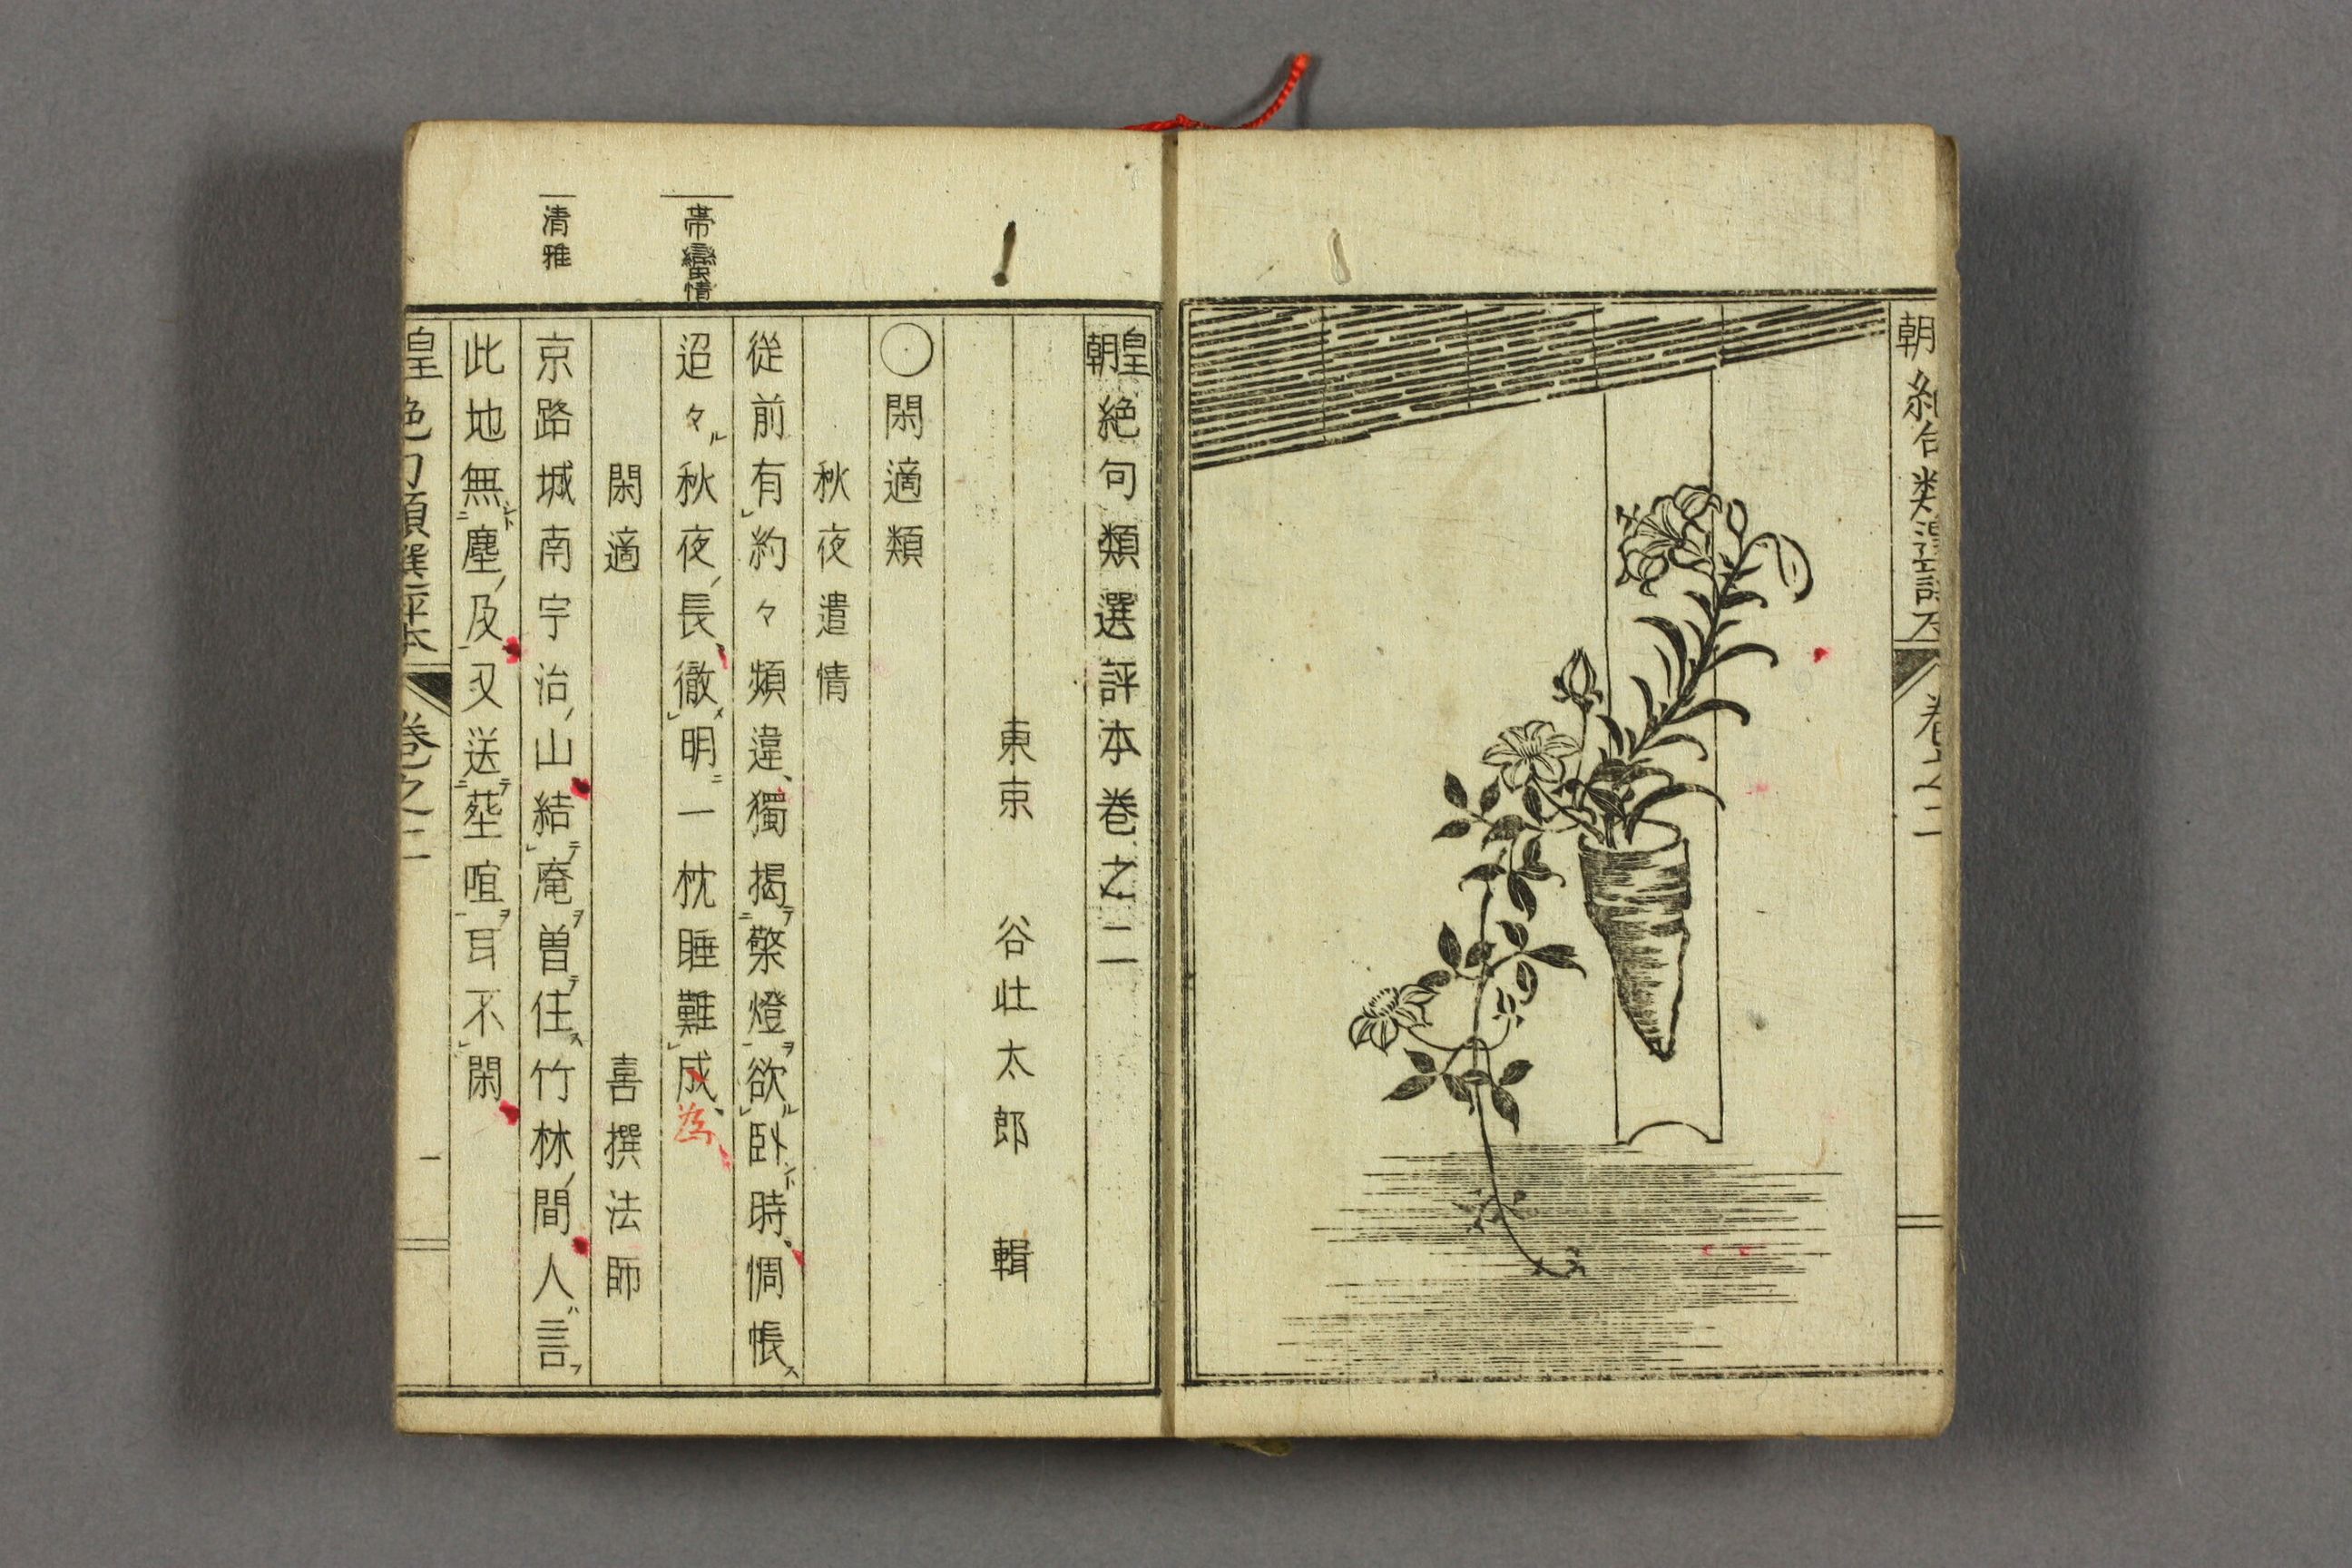 朝絶句類選評本 卷之二
皇朝絶句類選評本卷之二
東京 谷壮太郎 輯
○閑適類
秋夜遣情
從前有約々頻違獨掲檠燈欲臥時惆悵
迢々秋夜長徹明一枕睡難成
為
閑適 喜撰法師
京路城南宇治山結庵曽住竹林間人言
此地無塵及又送塋喧耳不閑
帯戀情
清雅
皇 絶句類選評本 卷之二 一